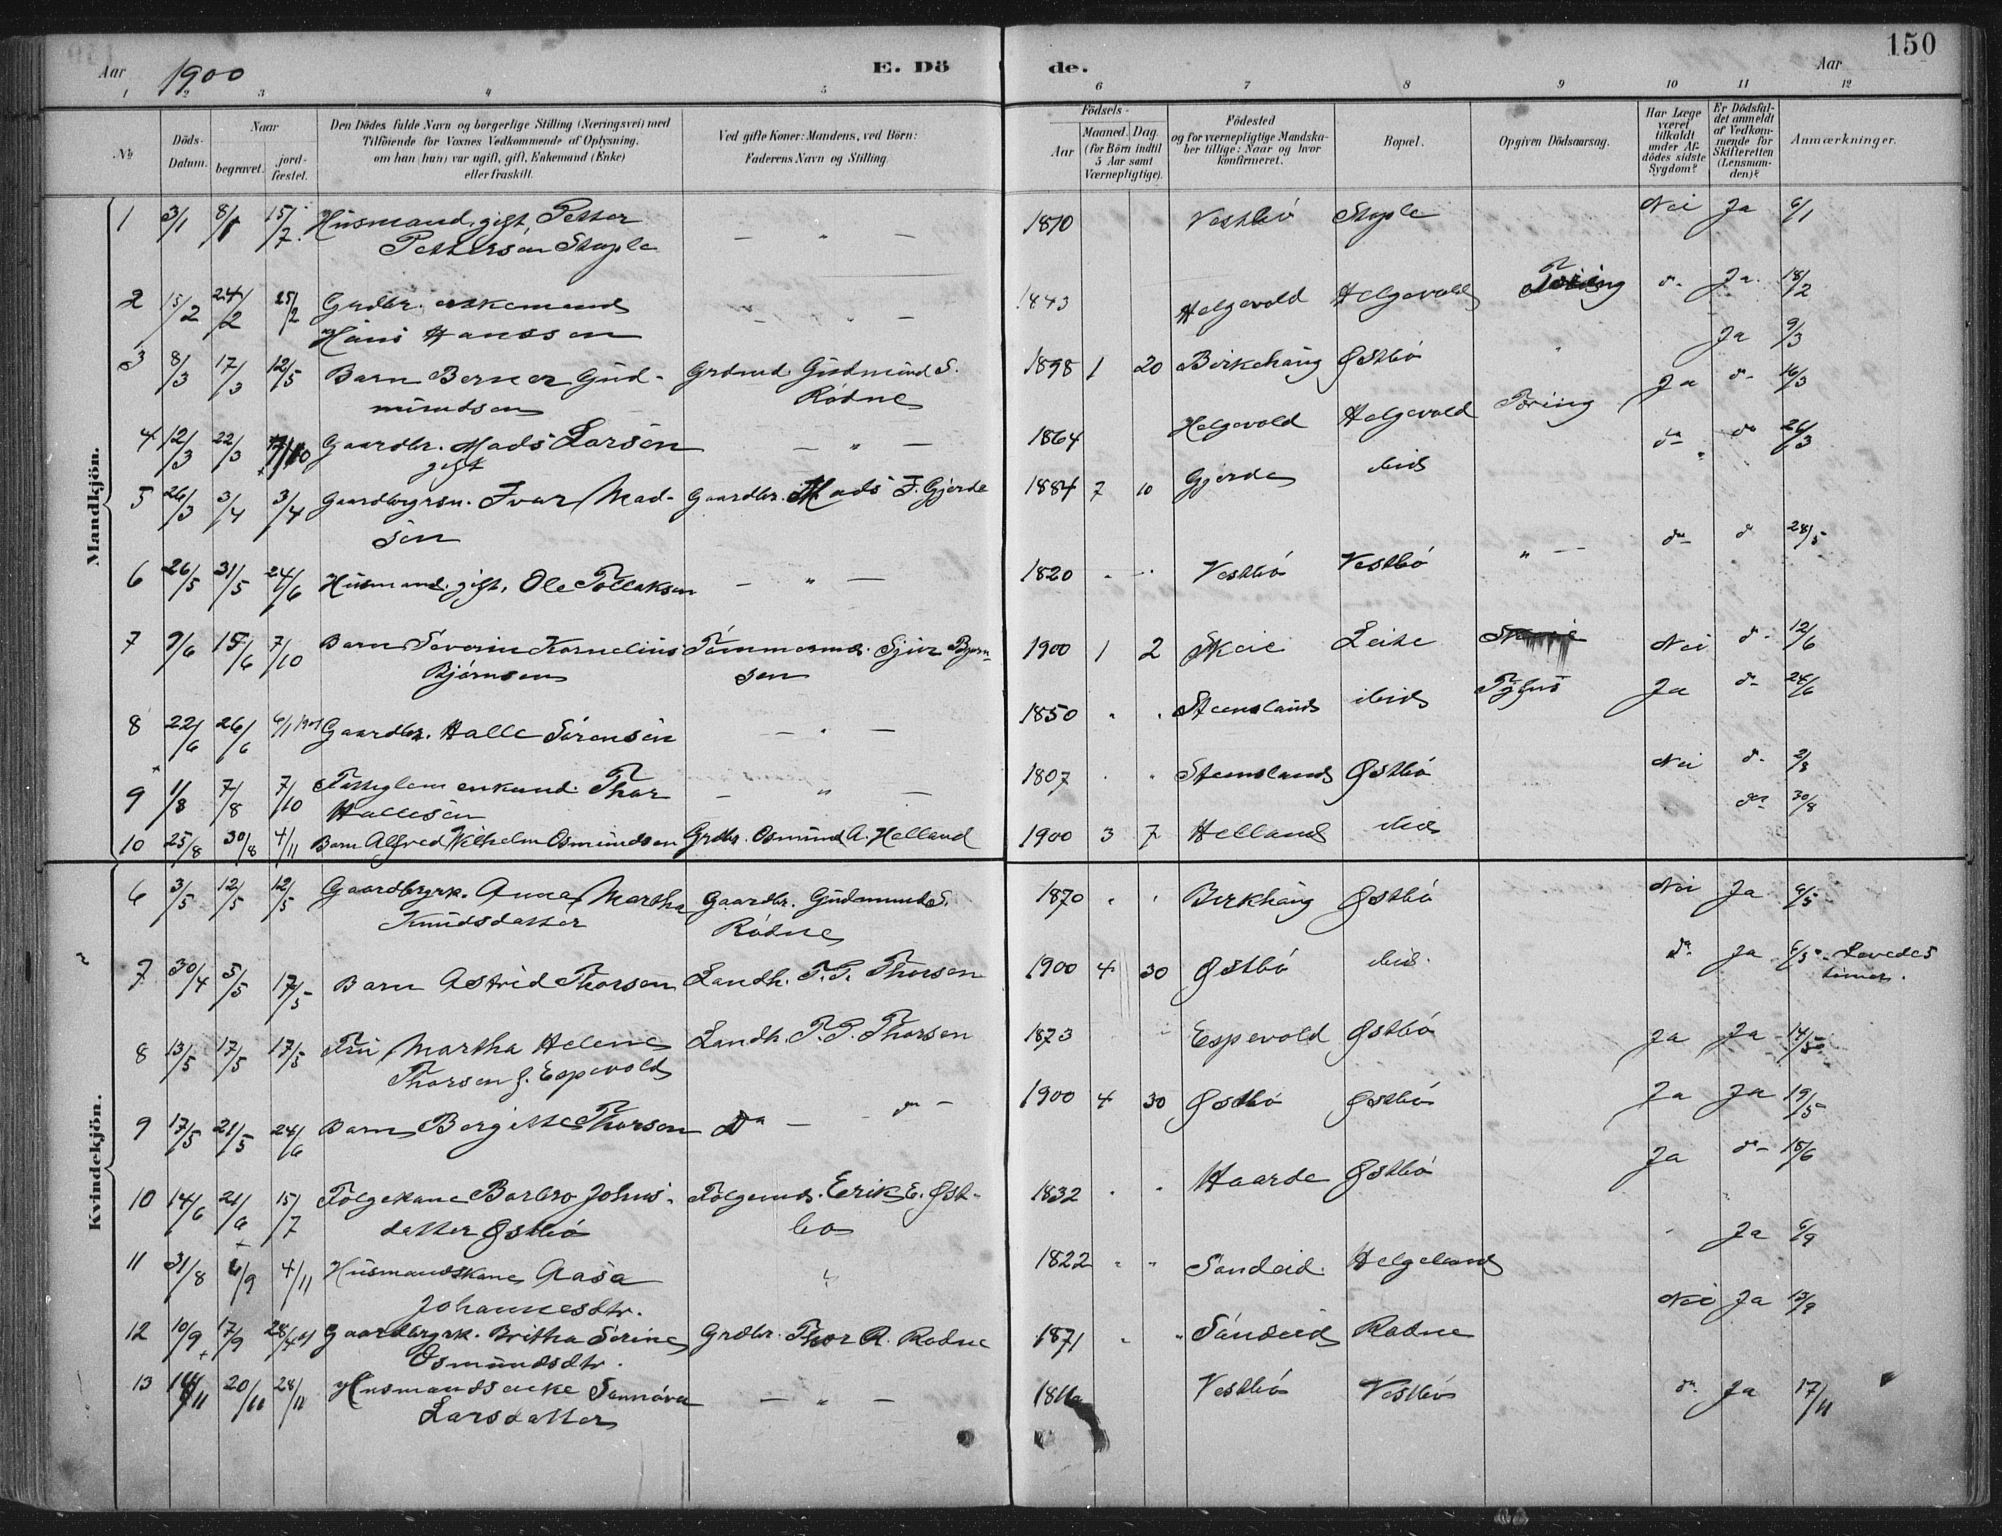 150
Aar 1900
E. Dö
de.
Aar
1 2 3 4 5 6 7 8 9 10 11 12
№
Döds-
Datum.
Naar
begravet.
jord-
fæstet.
Den Dödes fulde Navn og borgerlige Stilling (Næringsvei) med
Tilföiende for Voxnes Vedkommende af Oplysning,
om han (hun) var ugift, gift, Enkemand (Enke)
eller fraskilt.
Ved gifte Koner: Mandens, ved Börn:
Faderens Navn og Stilling.
Födsels-
Aar
Maaned. Dag.
(for Börn indtil
5 Aar samt
Værnepligtige).
Födested
og for værnepligtige Mandska-
ber tillige: Naar og hvor
konfirmeret.
Bopæl.
Opgiven Dödsaarsag.
Har Læge
været
tilkaldt
under Af-
dödes sidste
Sygdom?
Er Dödsfal-
det anmeldt
af Vedkom-
mende for
Skifteretten
(Lensman-
den)?
Anmærkninger.
Mandkjön.
1 3/1 8/1 15/7 Husmand, gift, Petter
Pettersen Stople — " — 1870 Vestbø Stople Nei Ja 6/1
2 15/2 24/2 25/2 Grdbr. enkemand
Hans Hanssen — " — 1843 Helgevold Helgevold Tæring do Ja 18/2
3 8/3 17/3 12/5 Barn Berner Gud-
mundsen Grdmd. Gudmund S.
Rødne 1898 1 20 Birkehaug Østbø Ja 9/3
4 12/3 22/3 7/10 Gaardbr. Mads Larsen
gift — " — 1864 Helgevold Helgevold Tæring Ja do 16/3
5 26/3 3/4 3/4 Gaardbrgrsn. Ivar Mad-
sen Gaardbr. Mads I. Gjerde 1884 7 10 Gjerde ibid do do 26/3
6 26/5 31/5 24/6 Husmand. gift, Ole Tollaksen — " — 1820 Vestbø Vestbø " — do do 28/5
7 9/6 15/6 7/10 Barn Severin Kornelius
Bjørnsen Tømmermd. Sjur Bjørn-
sen 1900 1 2 Skeie Leite Nei do 12/6
8 22/6 26/6 6/1 1901 Gaardbr. Halle Sørensen — " — 1850 Steensland ibid Tyfus Ja do 24/6
9 1/8 7/8 7/10 Fattiglem enkemd. Thor
Hallesen — " — 1807 Stensland Østbø Nei do 2/8
10 25/8 30/8 4/11 Barn Alfred Wilhelm Osmundsen Grdbr. Osmund A. Helland 1900 3 7 Helland ibid do 30/8
Kvindekjön.
6 3/5 12/5 12/5 Gaardbrgrk. Anna Martha
Knudsdatter Gaardbr. Gudmund S.
Rødne 1870 Birkhaug Østbø Nei Ja 6/5
7 30/4 5/5 17/5 Barn Astrid Thorsen Landh. T. T. Thorsen 1900 4 30 Østbø ibid. do Ja Levede 5
timer.
8 13/5 17/5 17/5 Fru Martha Helene
Thorsen f. Espevold Landh. T. T. Thorsen 1873 Espevold Østbø Ja Ja 14/5
9 17/5 21/5 24/6 Barn Bergitte Thorsen Do — do — 1900 4 30 Østbø Østbø Ja Ja 19/5
10 14/6 21/6 15/7 Følgekone Barbro Johns-
datter Østbø Følgemd. Eerik E. Øst-
bø 1832 Haarde Østbø Ja do 15/6
11 31/8 6/9 4/11 Husmandskone Aasa
Johannesdtr. " 1822 Sandeid. Helgeland Ja 6/9
12 10/9 17/9 28/4 01 Gaardbrgrk. Britha Serine
Osmundsdtr. Grdbr. Thor R. Rødne 1871 Sandeid Rødne Nei Ja 13/9
13 14/11 20/11 28/11 Husmandsenke Sennøva
Larsdatter — " — Vestbø Vestbø do Ja 17/11